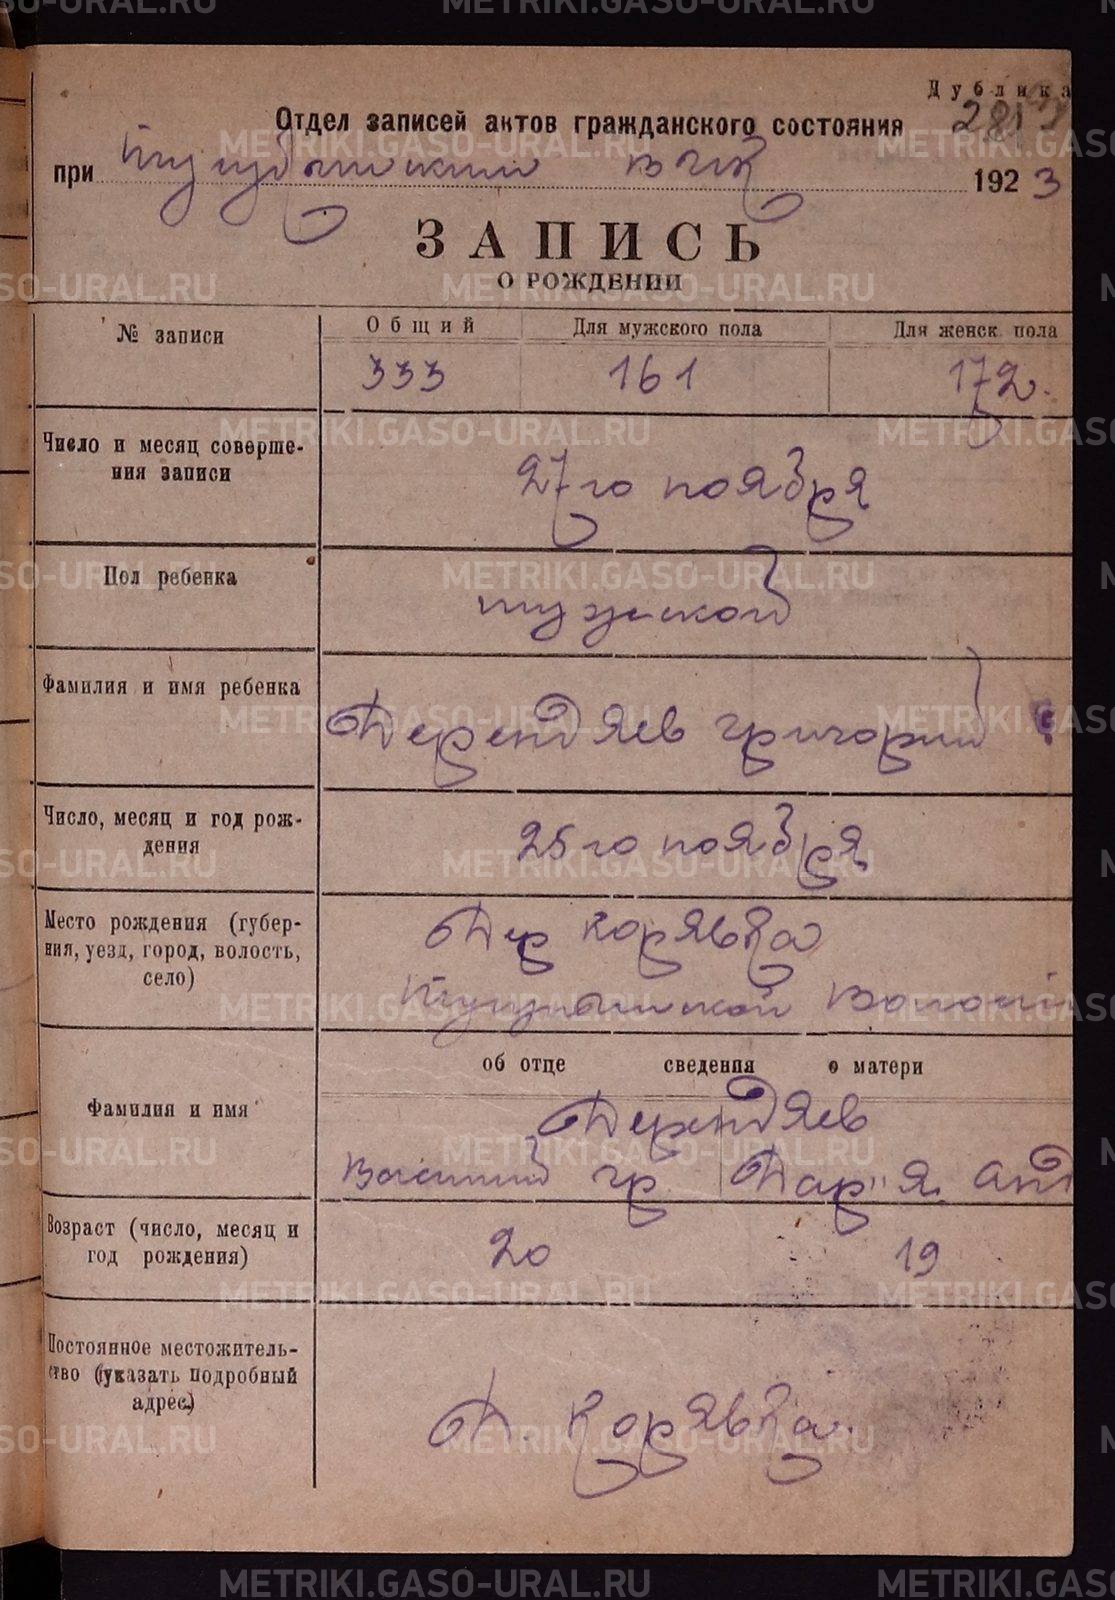 Дублика
2819
Отдел записей актов гражданского состояния
при вик 1923
ЗАПИСЬ
О РОЖДЕНИИ
№ записи
Общий Для мужского пола Для женск. пола
333 161 172.
Число и месяц соверше-
ния записи
27го ноября
Пол ребенка
мужской
Фамилия и имя ребенка
Дерендяев григорий
Число, месяц и год рож-
дения
25го ноября
Место рождения (губер-
ния, уезд, город, волость,
село)
Дер корявка
об отце сведения о матери
Фамилия и имя
Дерендяев
Василий гр Дар"я Анд
Возраст (число, месяц и
год рождения)
20 19
Постоянное местожитель-
ство (указать подробный
адрес)
Д. корявка.
METRIKI.GASO-URAL.RU